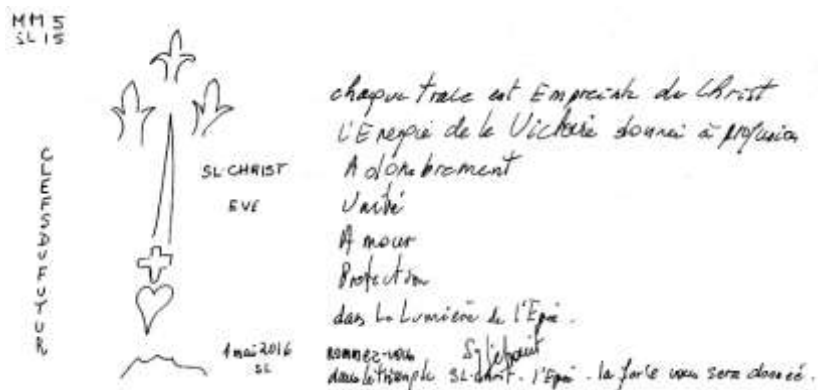 MM 5
SL 15
CLEFSDUFUTUR
SL-CHRIST
EVE
1 mai 2016
SL
chaque trace est Empreinte du Christ
L'Energie de la Victoire donnée à profusion
Adombrement
Unité
Amour
Protection
dans la Lumière de l'Epée.
nommez-vous
dans le triangle SL-Christ. l'Epée. la force vous sera donnée.